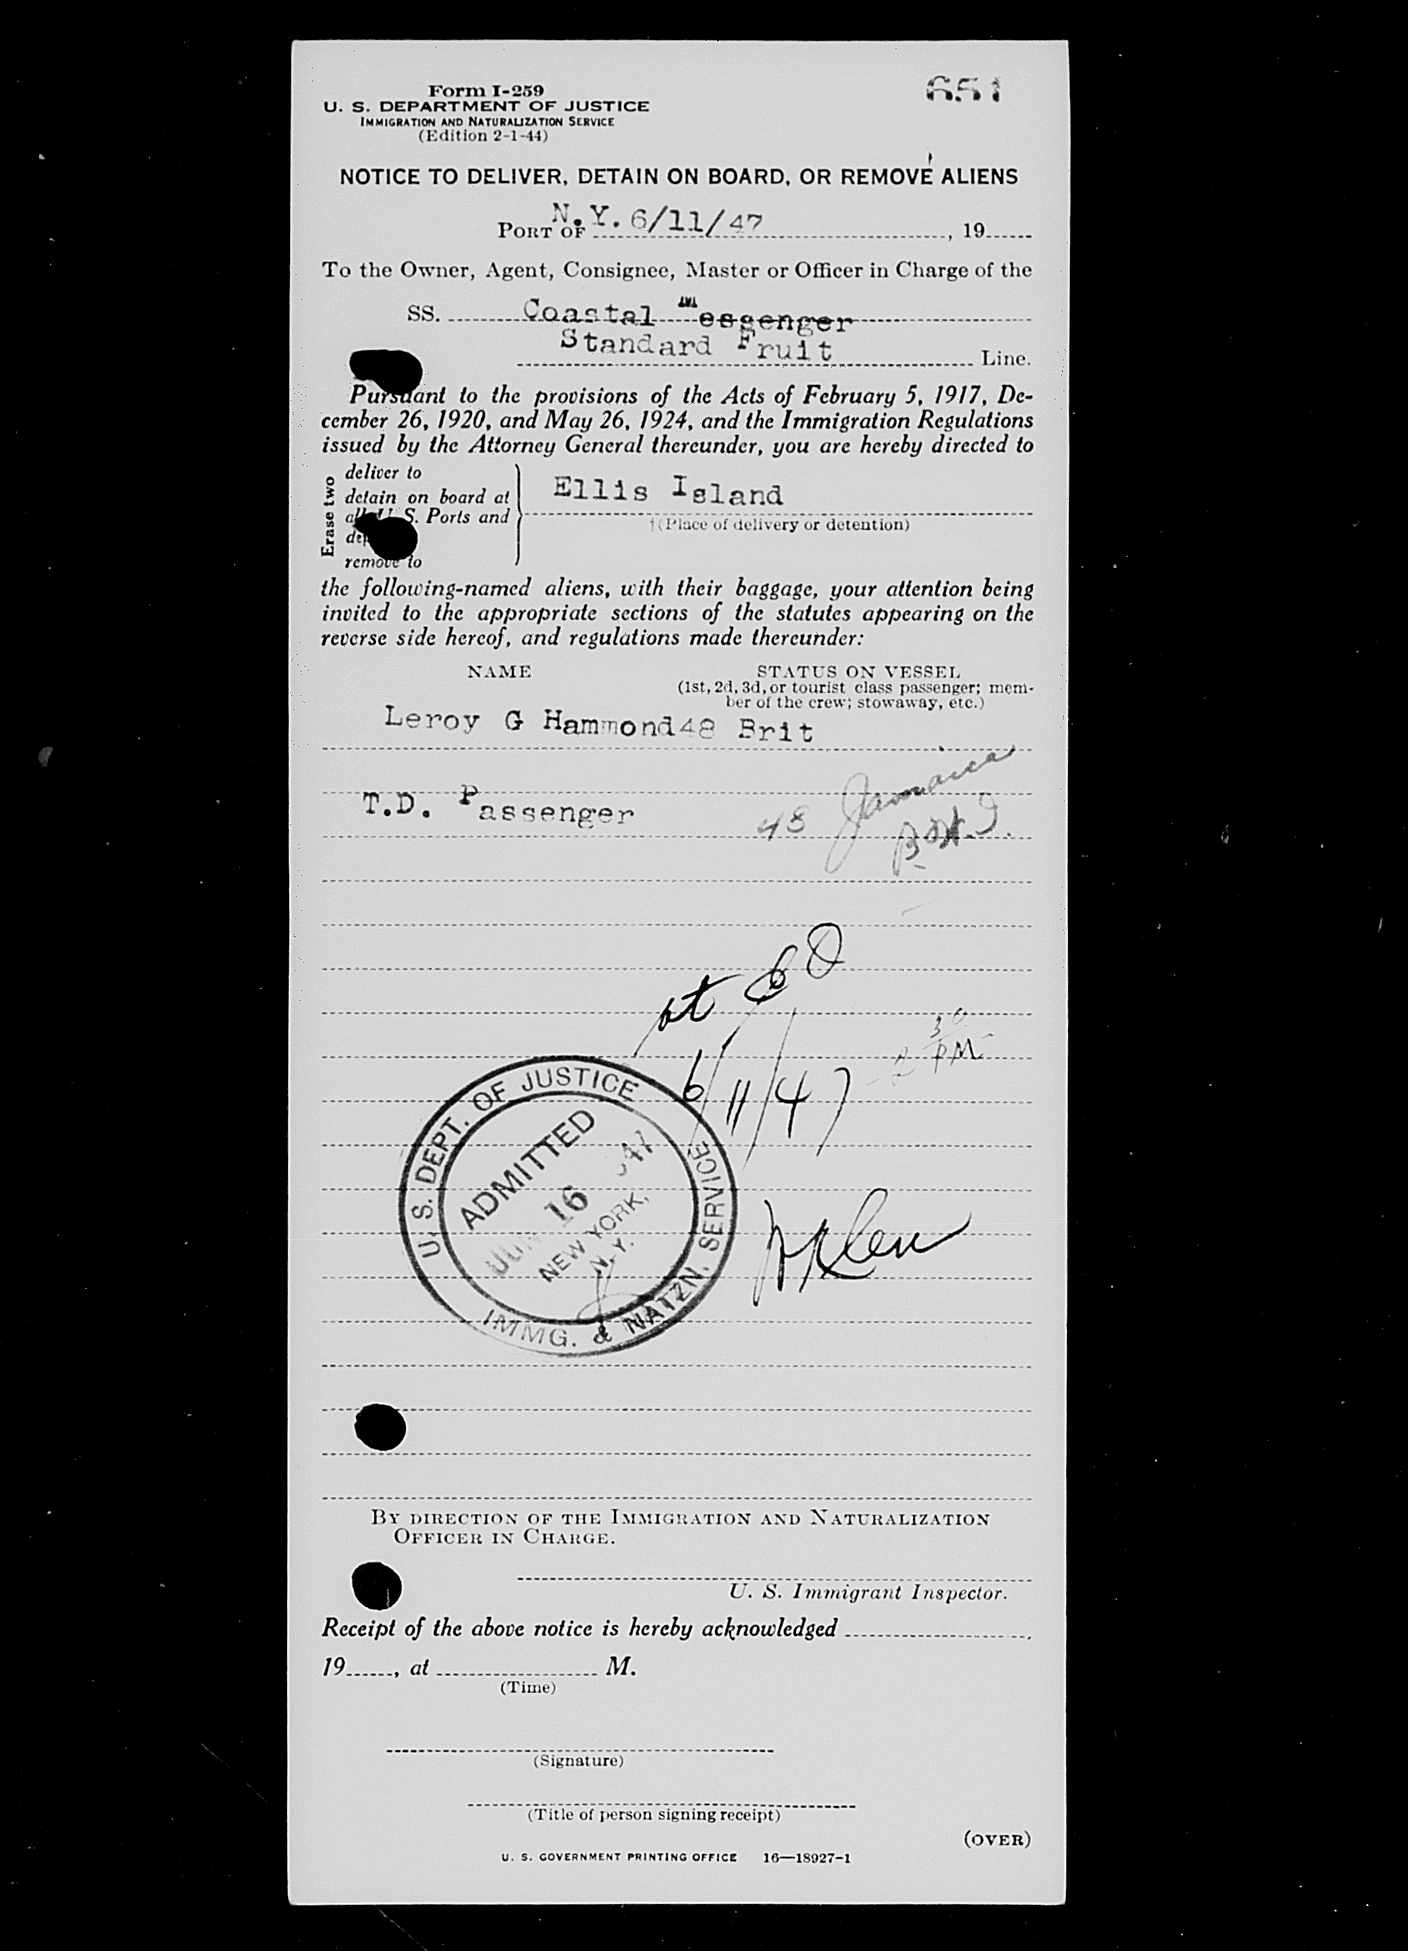 Form I-259
651
U. S. DEPARTMENT OF JUSTICE
IMMIGRATION AND NATURALIZATION SERVICE
(Edition 2-1-44)
NOTICE TO DELIVER, DETAIN ON BOARD, OR REMOVE ALIENS
PORT OF N.Y. 6/11/47, 19
To the Owner, Agent, Consignee, Master or Officer in Charge of the
SS. Coastal Messenger
Standard Fruit Line.
Pursuant to the provisions of the Acts of February 5, 1917, De-
cember 26, 1920, and May 26, 1924, and the Immigration Regulations
issued by the Attorney General thereunder, you are hereby directed to
Erase two
deliver to
detain on board at
all U. S. Ports and
remove to
Ellis Island
(Place of delivery or detention)
the following-named aliens, with their baggage, your attention being
invited to the appropriate sections of the statutes appearing on the
reverse side hereof, and regulations made thereunder:
NAME STATUS ON VESSEL
(1st, 2d, 3d, or tourist class passenger; mem-
ber of the crew; stowaway, etc.)
Leroy G Hammond 48 Brit
T.D. Passenger
48 Jamaica
B.W.I.
6/11/47
2 30 PM
U. S. DEPT. OF JUSTICE
ADMITTED
JUN 16 1947
NEW YORK,
N. Y.
IMMG. & NATZN. SERVICE
BY DIRECTION OF THE IMMIGRATION AND NATURALIZATION
OFFICER IN CHARGE.
U. S. Immigrant Inspector.
Receipt of the above notice is hereby acknowledged
19, at M.
(Time)
(Signature)
(Title of person signing receipt)
(OVER)
U. S. GOVERNMENT PRINTING OFFICE 16—18927-1